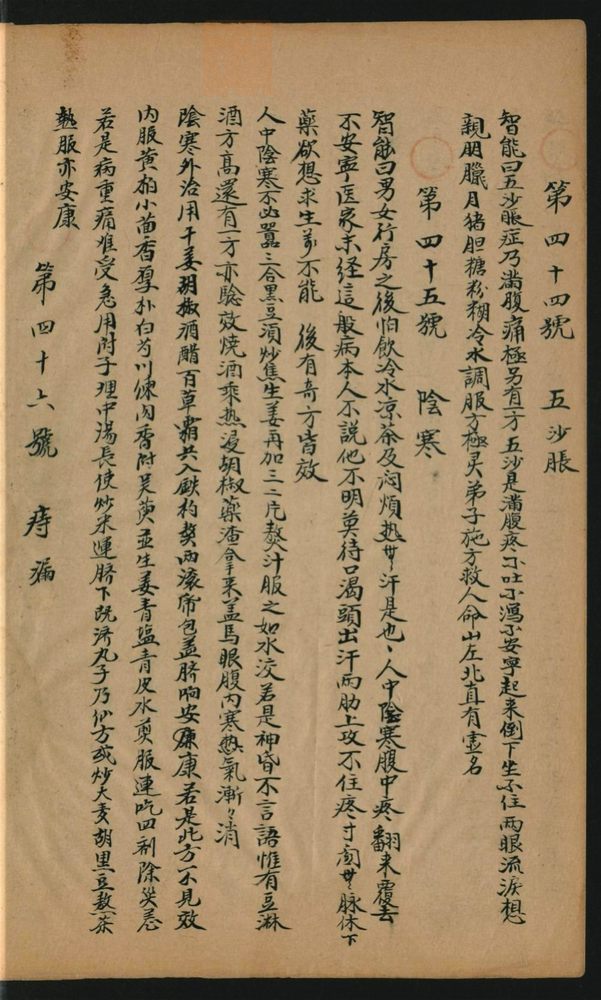 第四十四號　五沙脹
智能曰五沙脹症乃滿腹痛極另有一方五沙是滿腹疼不吐不瀉不安寧起来倒下坐不住两眼流淚想
親朋臘月猪胆糖粉糊冷水調服方極灵弟子施方救人命山左北直有虚名
第四十五號　陰寒
智能曰男女行房之後怕飲冷水凉茶及闷煩热世汗是也人中陰寒腹中疼翻来覆去
不安寧医家未经這般病本人不説他不明莫待口渴頭出汗两肋上攻不住疼寸関世脉休下
藥欲想求生萬不能　後有奇方皆效
人中陰寒不必囂三合黑豆須炒焦生姜再加三二片熬汁服之如水沃若是神昏不言語惟有豆淋
酒方高還有一方亦驗效焼酒乘热浸胡椒藥渣拿来盖馬眼腹内寒热氣漸々消
陰寒外治用干姜胡椒酒醋百草霜共入鉄杓熬两滚帛包盖臍响安康若是此方不見效
内服黄柏小茴香厚朴白芍川楝肉香附吴萸並生姜青塩青皮水煎服連吃四剂除災恙
若是病重痛难受急用附子理中湯長使炒米運臍下既济丸子乃仙方或炒大麦胡黑豆熬茶
熱服亦安康
第四十六號　痔漏